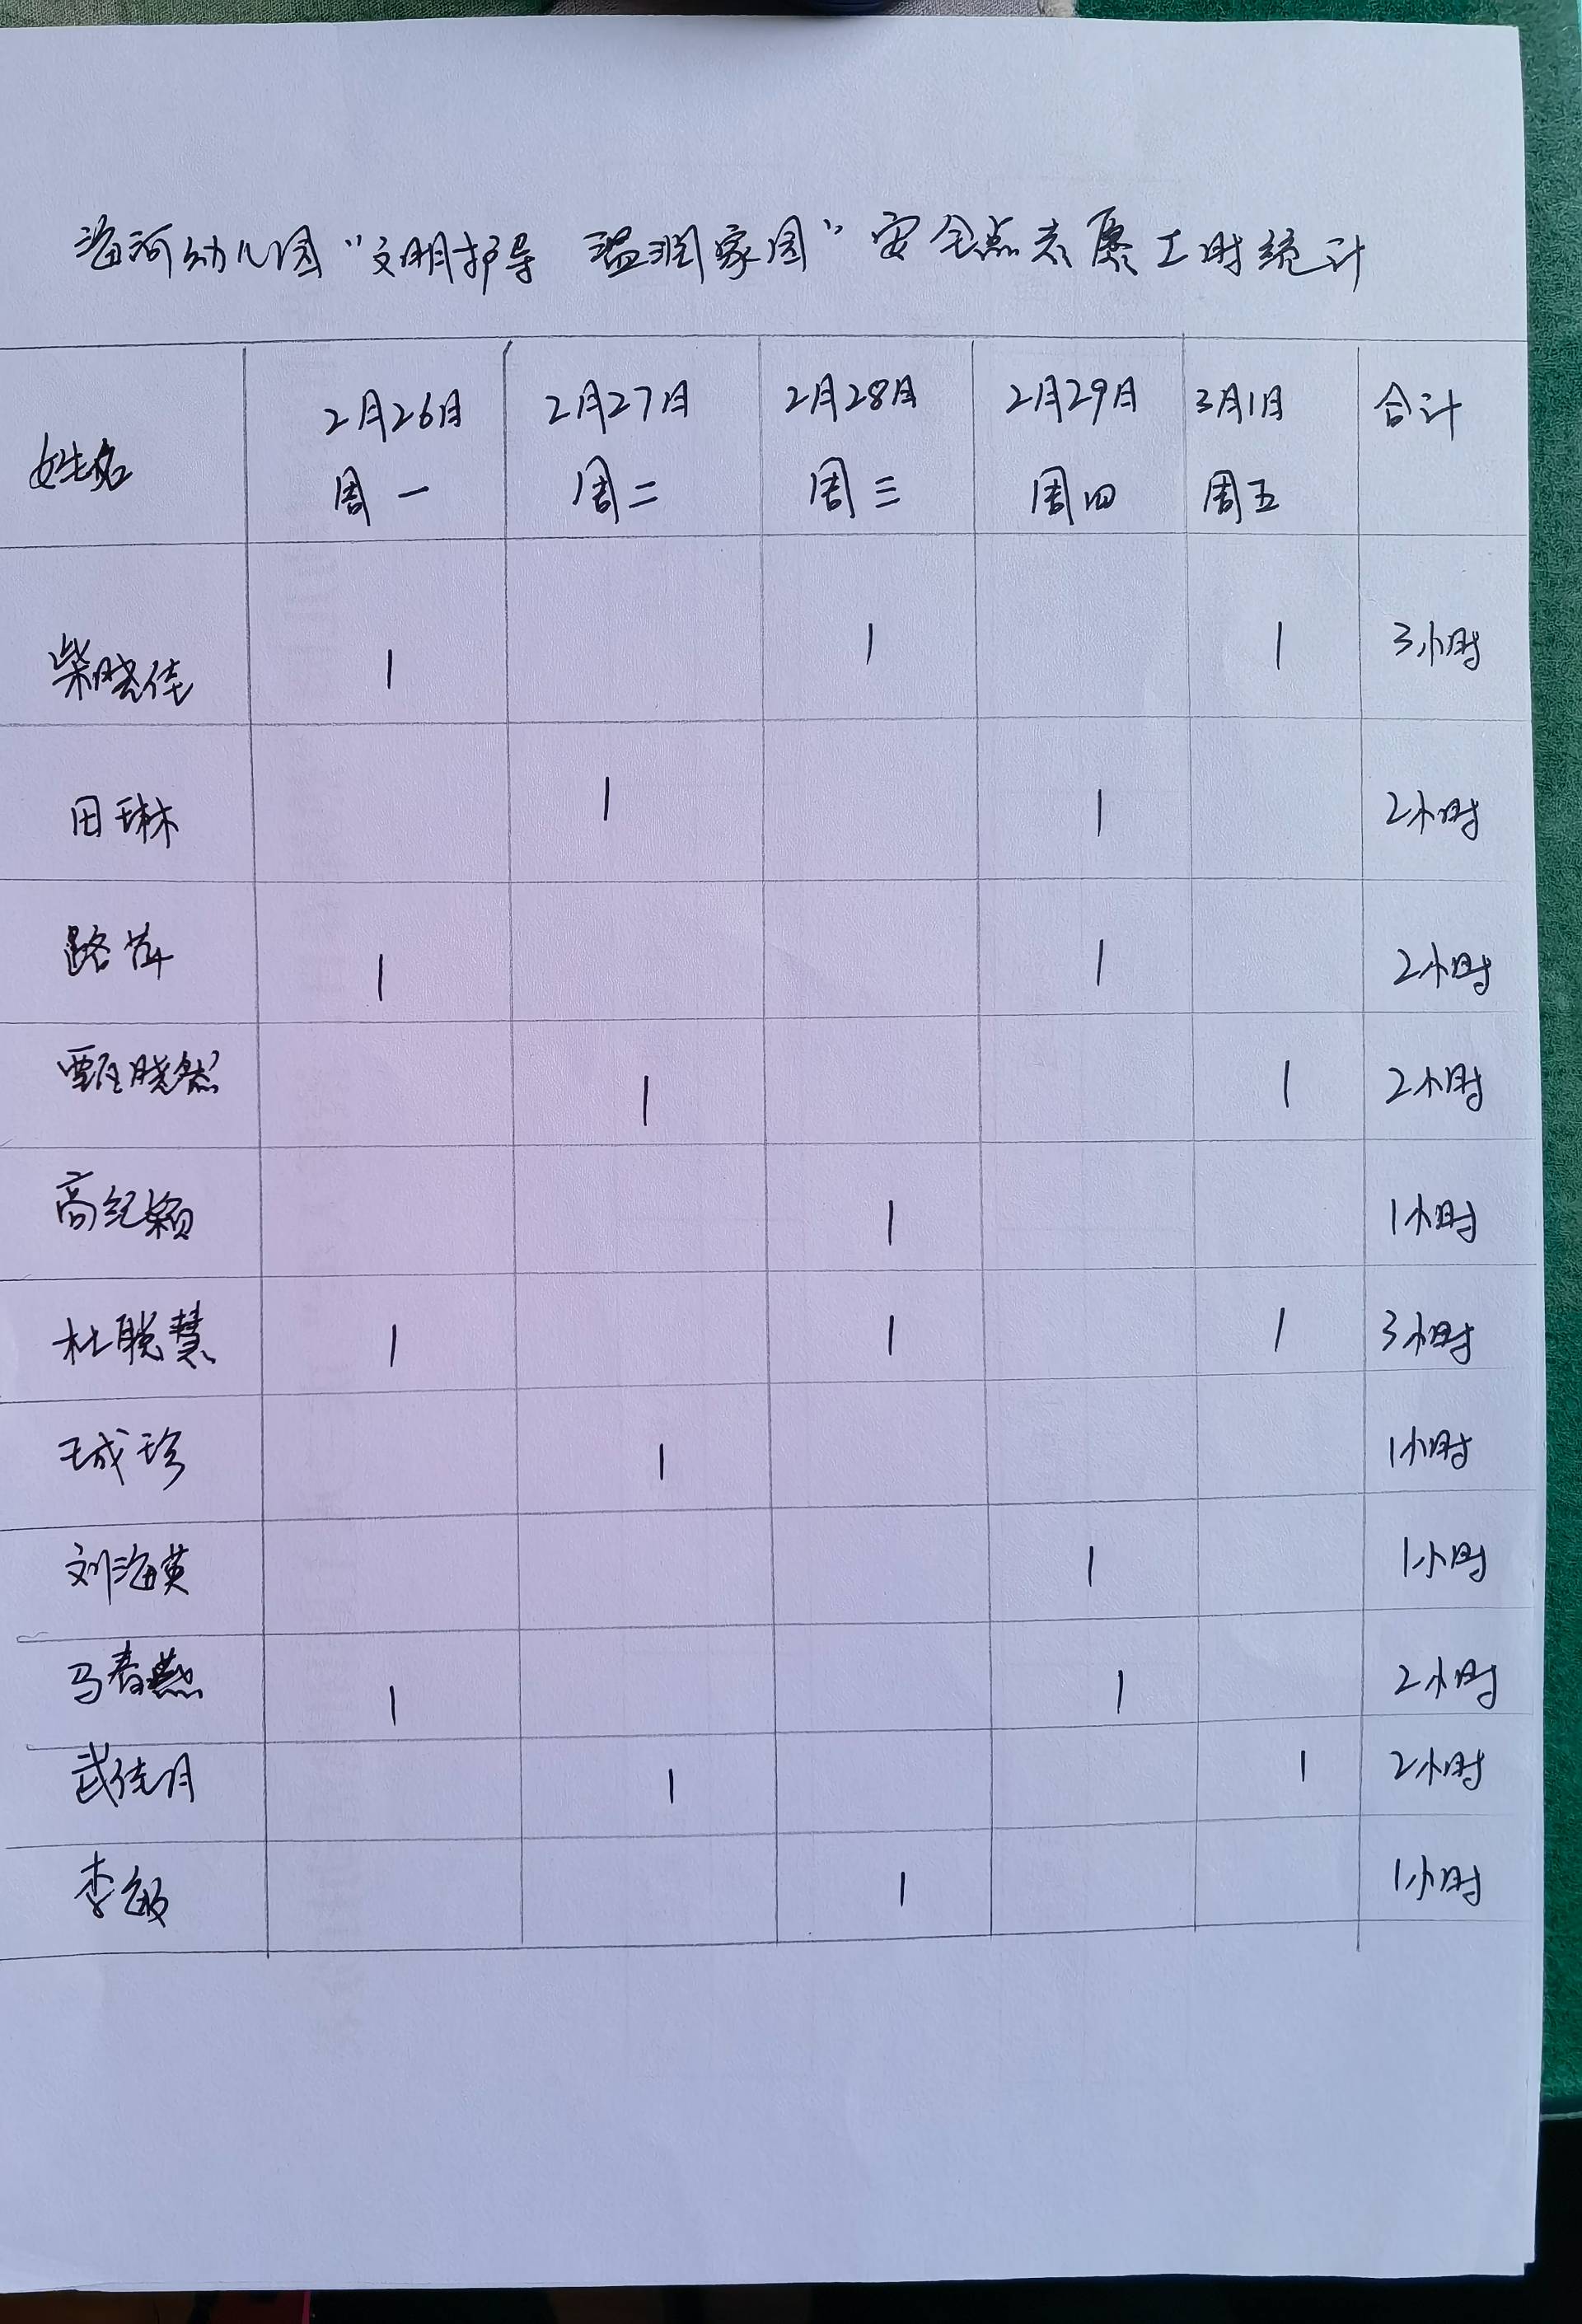 海河幼儿园“文明护导 温润家园”安全志愿工时统计
姓名 2月26日 周一 2月27日 周二 2月28日 周三 2月29日 周四 3月1日 周五 合计
柴晓佳 1 1 1 3小时
田琳 1 1 2小时
路苹 1 1 2小时
甄晓然 1 1 2小时
高纪颖 1 1小时
杜晓慧 1 1 1 3小时
王成珍 1 1小时
刘海英 1 1小时
马春燕 1 1 2小时
武佳月 1 1 2小时
李敏 1 1小时